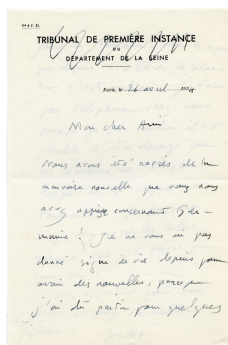 TRIBUNAL DE PREMIÈRE INSTANCE
DU
DÉPARTEMENT DE LA SEINE
Paris, le 26 avril 193
Mon cher Ami
Nous avons été navrés de la
mauvaise nouvelle que vous nous
avez apprise concernant Ger-
maine ! Je ne vous ai pas
donné signe de vie depuis pour
avoir des nouvelles, parce que
j'ai dû partir pour quelques